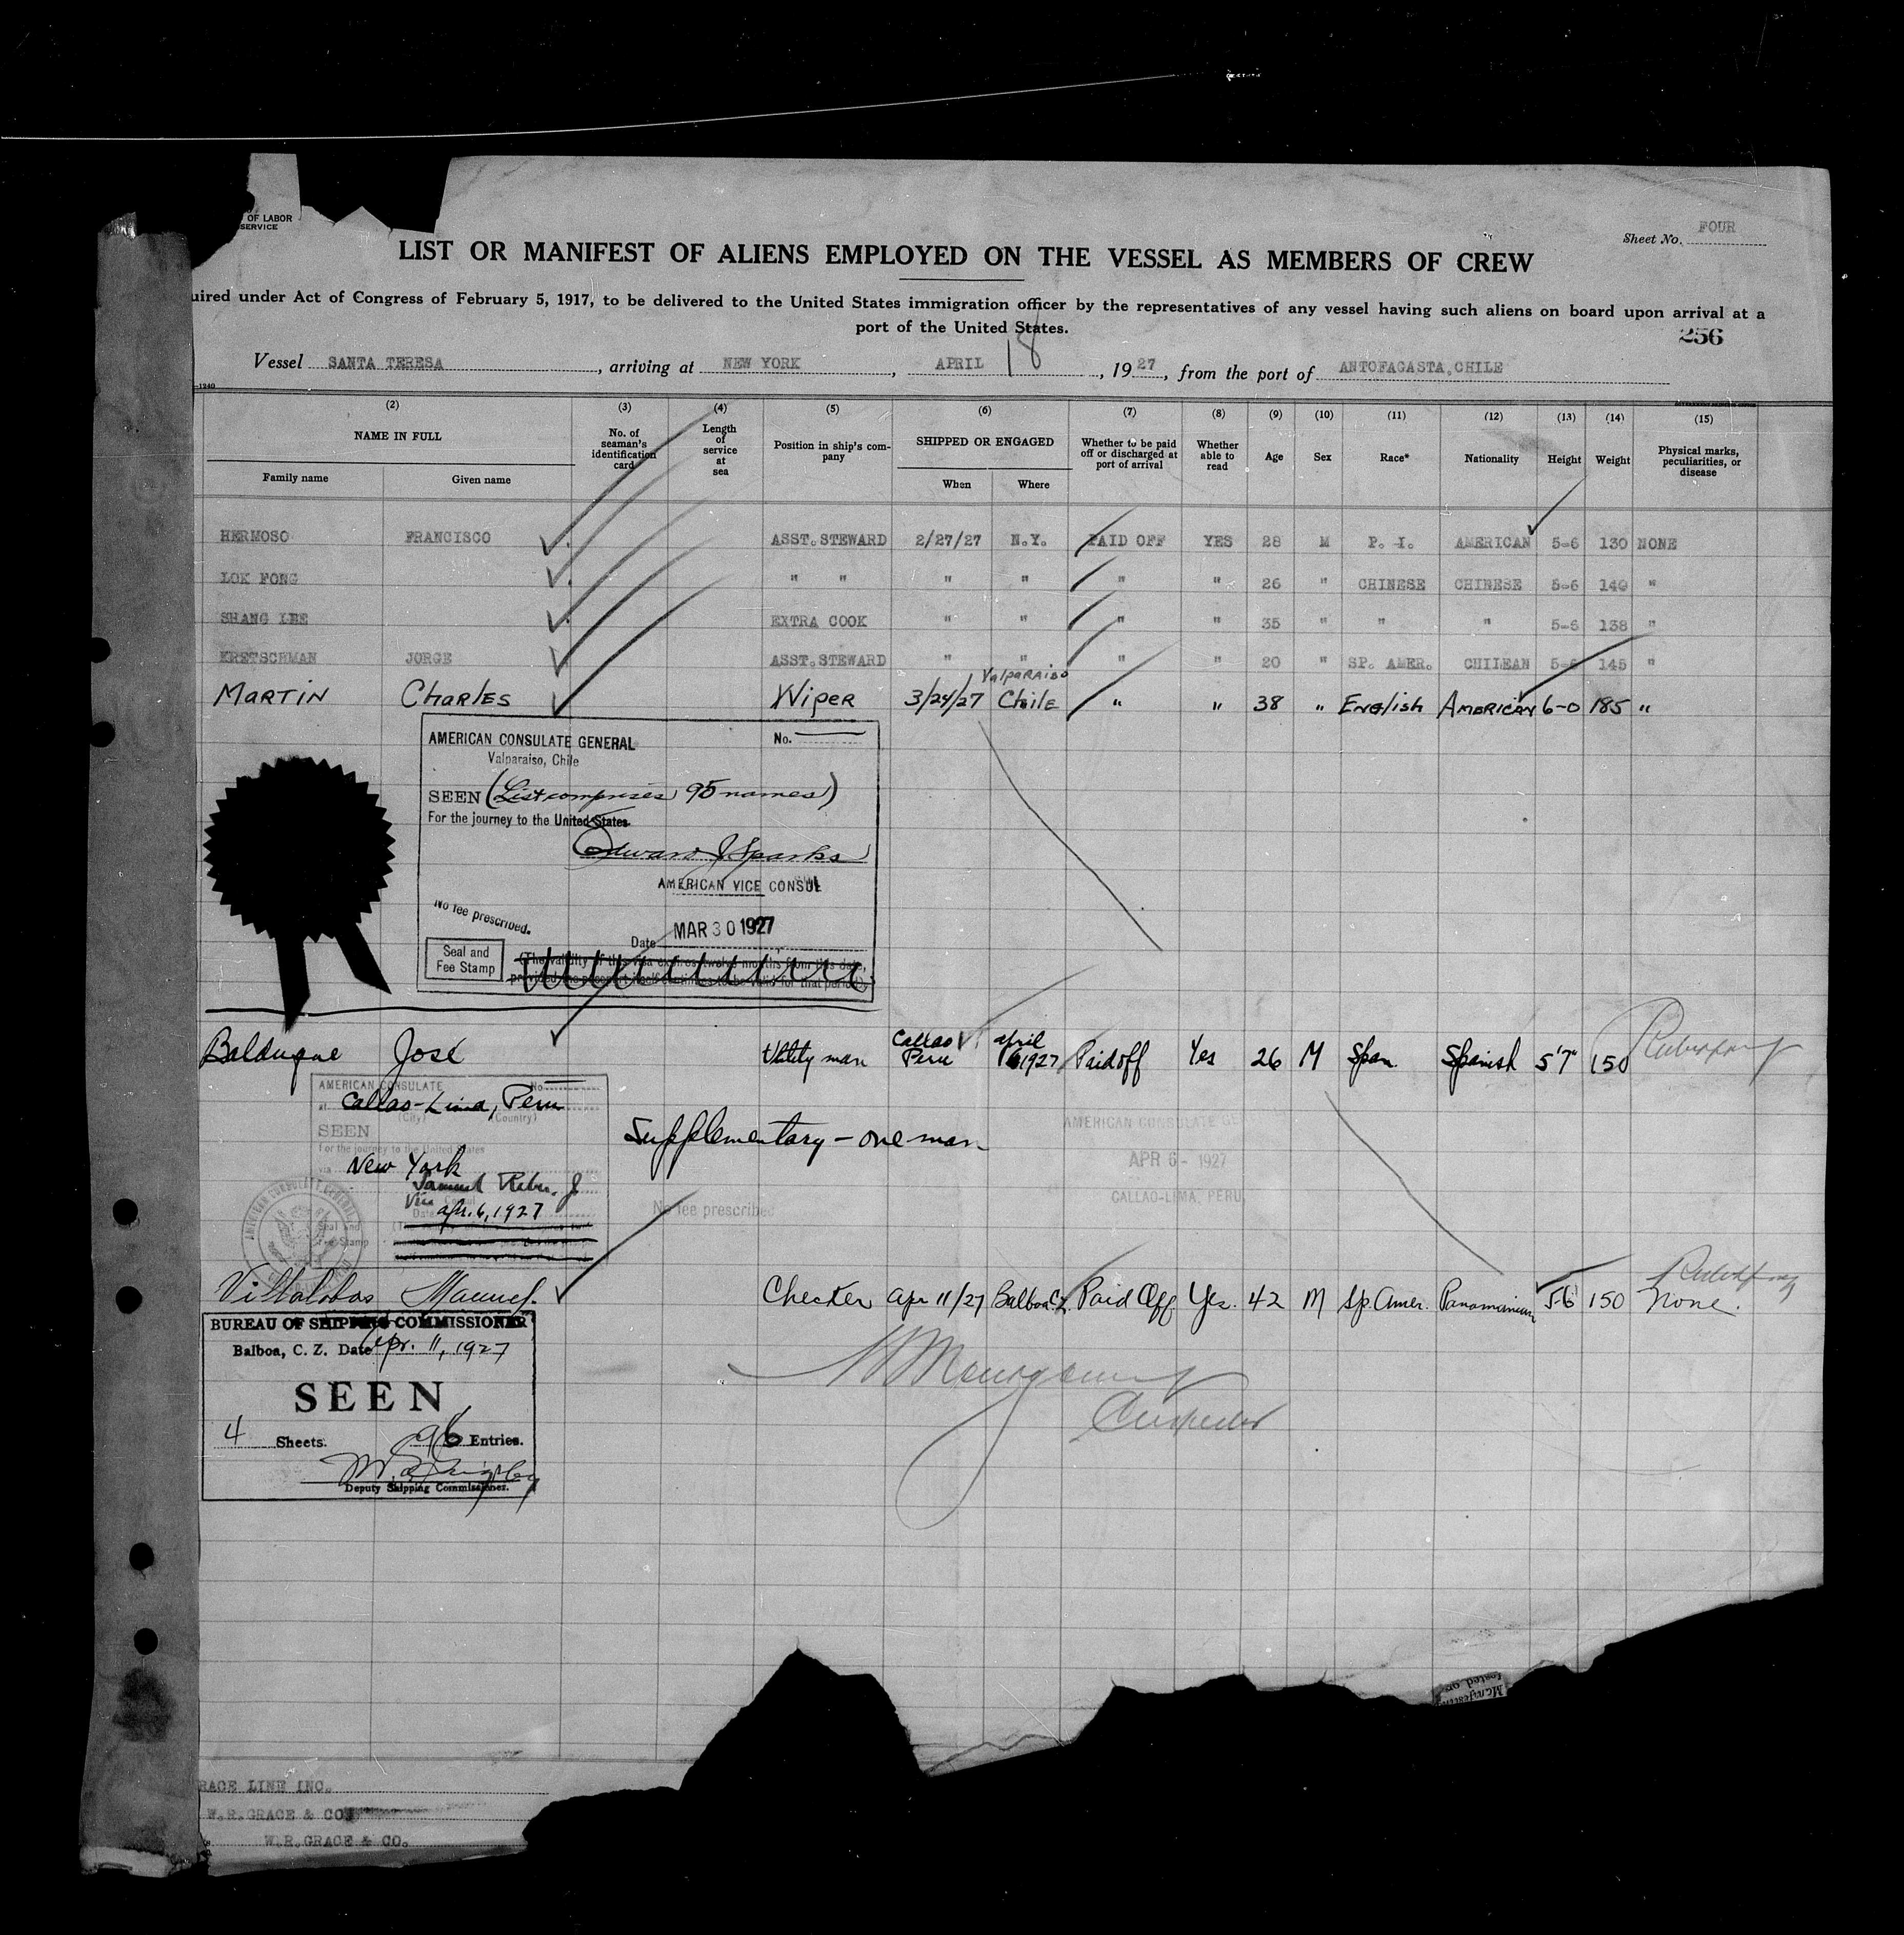 OF LABOR
SERVICE
Sheet No. FOUR
LIST OR MANIFEST OF ALIENS EMPLOYED ON THE VESSEL AS MEMBERS OF CREW
uired under Act of Congress of February 5, 1917, to be delivered to the United States immigration officer by the representatives of any vessel having such aliens on board upon arrival at a
port of the United States.
256
Vessel SANTA TERESA, arriving at NEW YORK, APRIL 18, 1927, from the port of ANTOFAGASTA, CHILE
(2) (3) (4) (5) (6) (7) (8) (9) (10) (11) (12) (13) (14) (15)
NAME IN FULL
Family name Given name
No. of seaman's identification card
Length of service at sea
Position in ship's company
SHIPPED OR ENGAGED
When Where
Whether to be paid off or discharged at port of arrival
Whether able to read
Age
Sex
Race*
Nationality
Height
Weight
Physical marks, peculiarities, or disease
HERMOSO FRANCISCO ASST. STEWARD 2/27/27 N.Y. PAID OFF YES 28 M P. I. AMERICAN 5-6 130 NONE
LOK FONG " " " " " " 26 " CHINESE CHINESE 5-6 140 "
SHANG LEE EXTRA COOK " " " " 35 " " " 5-6 138 "
KRETSCHMAN JORGE ASST. STEWARD " " " " 20 " SP. AMER. CHILEAN 5-6 145 "
MARTIN CHARLES WIPER 3/24/27 Valparaiso Chile " " 38 " English American 6-0 185 "
AMERICAN CONSULATE GENERAL No.
Valparaiso, Chile
SEEN (List comprises 95 names)
For the journey to the United States.
Edward J Sparks
AMERICAN VICE CONSUL
No fee prescribed.
Date MAR 30 1927
Seal and
Fee Stamp
(The validity of this visa expires twelve months from this date,
Balduque José Utility man Callao Peru April 6 1927 Paid off Yes 26 M Span. Spanish 5'7" 150
AMERICAN CONSULATE No
at Callao-Lima, Peru
(City) (Country)
SEEN
For the journey to the United States
via New York
Apr. 6, 1927
Supplementary - one man
AMERICAN CONSULATE GE
APR 6 - 1927
CALLAO-LIMA, PERU
No fee prescribed
Villalobos Manuel Checker Apr 11/27 Balboa C.Z. Paid Off Yes. 42 M Sp. Amer. Panamanian 5-6 150 none.
BUREAU OF SHIPPING COMMISSIONER
Balboa, C. Z. Date Apr. 11, 1927
SEEN
4 Sheets. 96 Entries.
Deputy Shipping Commissioner.
RACE LINE INC.
W.R.GRACE & CO
W.R.GRACE & CO.